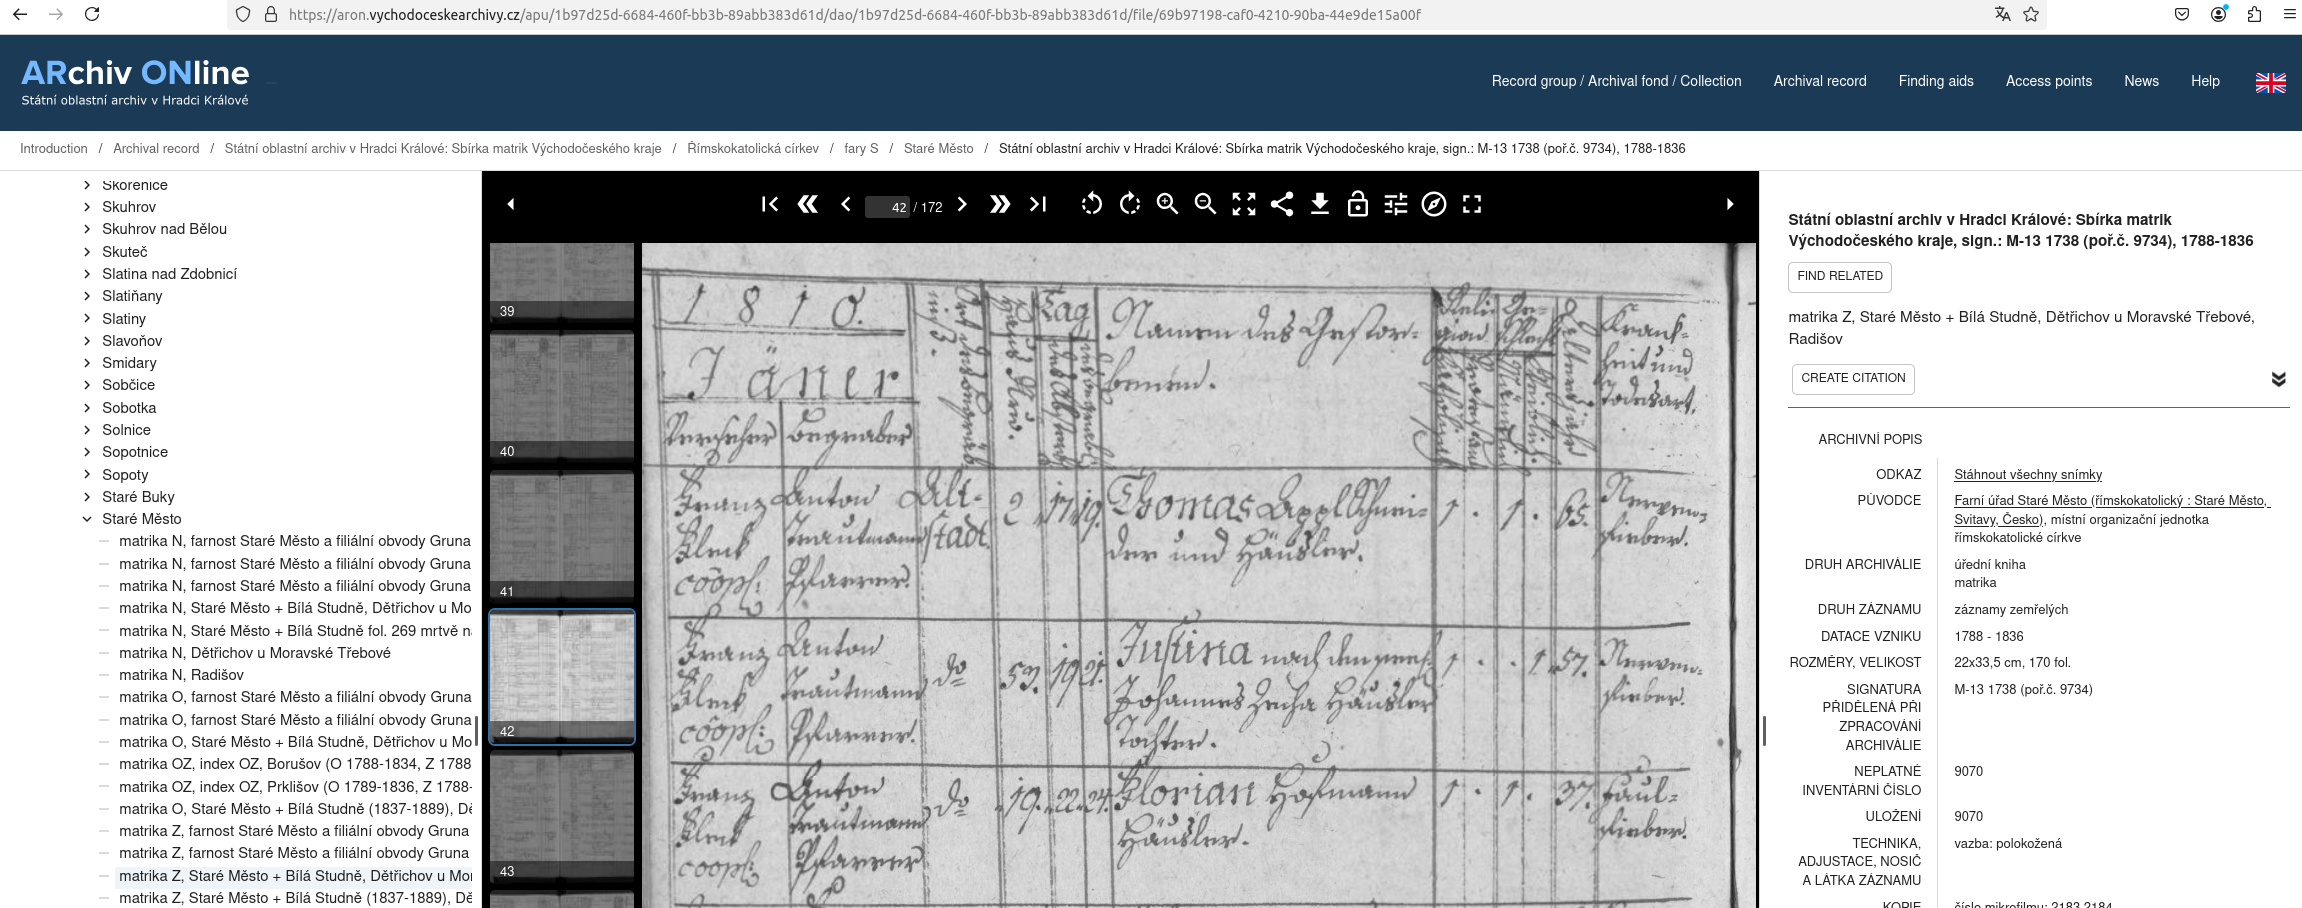 https://aron.vychodoceskearchivy.cz/apu/1b97d25d-6684-460f-bb3b-89abb383d61d/dao/1b97d25d-6684-460f-bb3b-89abb383d61d/file/69b97198-caf0-4210-90ba-44e9de15a00f
ARchiv ONline
Státní oblastní archiv v Hradci Králové
Record group / Archival fond / Collection
Archival record
Finding aids
Access points
News
Help
Introduction / Archival record / Státní oblastní archiv v Hradci Králové: Sbírka matrik Východočeského kraje / Římskokatolická církev / fary S / Staré Město / Státní oblastní archiv v Hradci Králové: Sbírka matrik Východočeského kraje, sign.: M-13 1738 (poř.č. 9734), 1788-1836
Skořenice
Skuhrov
Skuhrov nad Bělou
Skuteč
Slatina nad Zdobnicí
Slatiňany
Slatiny
Slavoňov
Smidary
Sobčice
Sobotka
Solnice
Sopotnice
Sopoty
Staré Buky
Staré Město
matrika N, farnost Staré Město a filiální obvody Gruna
matrika N, farnost Staré Město a filiální obvody Gruna
matrika N, farnost Staré Město a filiální obvody Gruna
matrika N, Staré Město + Bílá Studně, Dětřichov u Mo
matrika N, Staré Město + Bílá Studně fol. 269 mrtvě n
matrika N, Dětřichov u Moravské Třebové
matrika N, Radišov
matrika O, farnost Staré Město a filiální obvody Gruna
matrika O, farnost Staré Město a filiální obvody Gruna
matrika O, Staré Město + Bílá Studně, Dětřichov u Mo
matrika OZ, index OZ, Borušov (O 1788-1834, Z 1788
matrika OZ, index OZ, Prklišov (O 1789-1836, Z 1788-
matrika O, Staré Město + Bílá Studně (1837-1889), Dě
matrika Z, farnost Staré Město a filiální obvody Gruna
matrika Z, farnost Staré Město a filiální obvody Gruna
matrika Z, Staré Město + Bílá Studně, Dětřichov u Mor
matrika Z, Staré Město + Bílá Studně (1837-1889), Dě
42 / 172
39
40
41
42
43
1810.
Jäner
Verseher Begraber
Haus Nro.
Tag
Namen des Gestor-
benen.
Krank-
heit und
Todesart.
Franz Anton Alt- 2 17 19. Thomas Appl Schnei- 1 . 1 . 65. Nerven-
Trautmann stadt. der und Häusler. fieber.
coop: Pfarrer.
Franz Anton do 53. 19 21. Justina nach dem 1 . . 1 57. Nerven-
Trautmann Johannes Zecha Häusler fieber.
coop: Pfarrer. Tochter.
Franz Anton do 19. 22. 24. Florian Hofmann 1 . 1 . 37. Faul-
Trautmann Häusler. fieber.
coop: Pfarrer
Státní oblastní archiv v Hradci Králové: Sbírka matrik
Východočeského kraje, sign.: M-13 1738 (poř.č. 9734), 1788-1836
FIND RELATED
matrika Z, Staré Město + Bílá Studně, Dětřichov u Moravské Třebové,
Radišov
CREATE CITATION
ARCHIVNÍ POPIS
ODKAZ Stáhnout všechny snímky
PŮVODCE Farní úřad Staré Město (římskokatolický : Staré Město,
Svitavy, Česko), místní organizační jednotka
římskokatolické církve
DRUH ARCHIVÁLIE úřední kniha
matrika
DRUH ZÁZNAMU záznamy zemřelých
DATACE VZNIKU 1788 - 1836
ROZMĚRY, VELIKOST 22x33,5 cm, 170 fol.
SIGNATURA M-13 1738 (poř.č. 9734)
PŘIDĚLENÁ PŘI
ZPRACOVÁNÍ
ARCHIVÁLIE
NEPLATNÉ 9070
INVENTÁRNÍ ČÍSLO
ULOŽENÍ 9070
TECHNIKA, vazba: polokožená
ADJUSTACE, NOSIČ
A LÁTKA ZÁZNAMU
KOPIE číslo mikrofilmu: 2183,2184